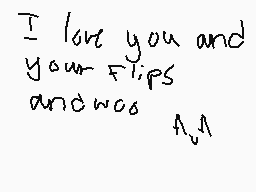 I love you and
your Flips
and woo